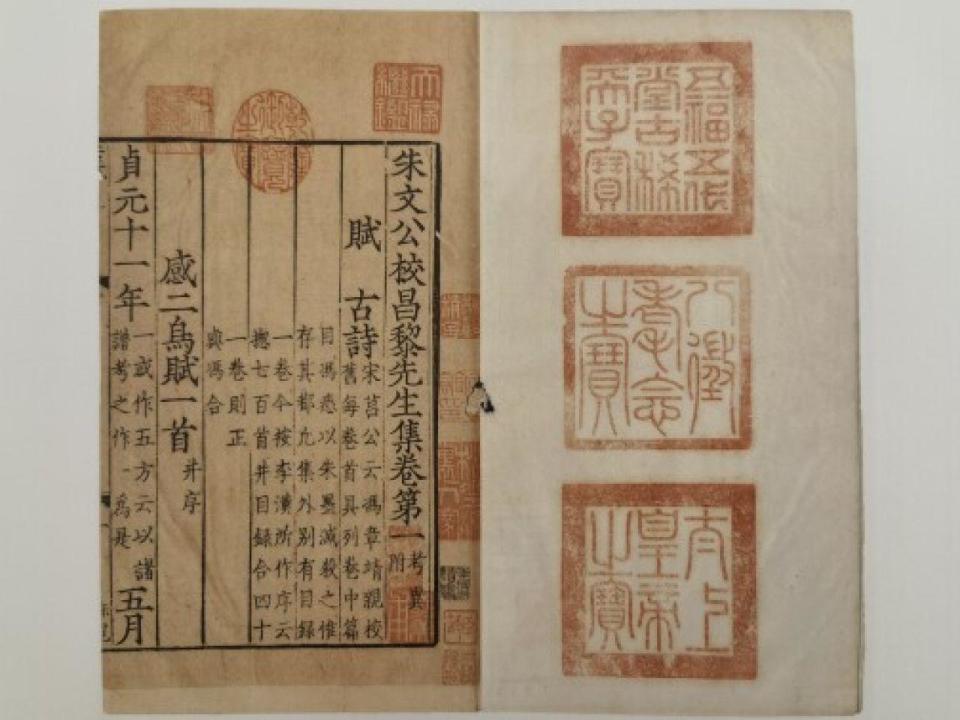 五福五代
堂古稀
天子寶
八徵
耄念
之寶
太上
皇帝
之寶
天祿
繼鑑
乾隆
御覽
之寶
朱文公校昌黎先生集卷第一 考異附
賦 古詩 宋莒公云馮章靖親校
舊每卷首具列卷中篇
目馮悉以朱墨滅殺之惟
存其都凡集外別有目録
一卷今按李漢所作序云
揔七百首并目録合四十
一卷則正
與馮合
感二鳥賦一首 并序
貞元十一年 一或作五方云以諸
譜考之作一爲是 五月